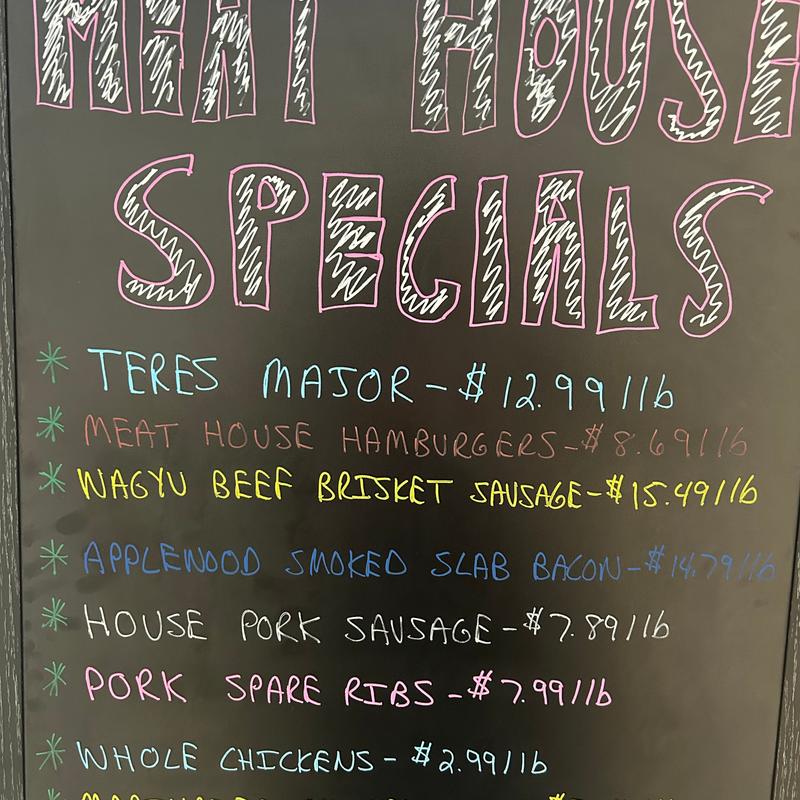 MEAT HOUSE
SPECIALS
* TERES MAJOR - $12.99/lb
* MEAT HOUSE HAMBURGERS - $8.69/lb
* WAGYU BEEF BRISKET SAUSAGE - $15.49/lb
* APPLEWOOD SMOKED SLAB BACON - $14.79/lb
* HOUSE PORK SAUSAGE - $7.89/lb
* PORK SPARE RIBS - $7.99/lb
* WHOLE CHICKENS - $2.99/lb